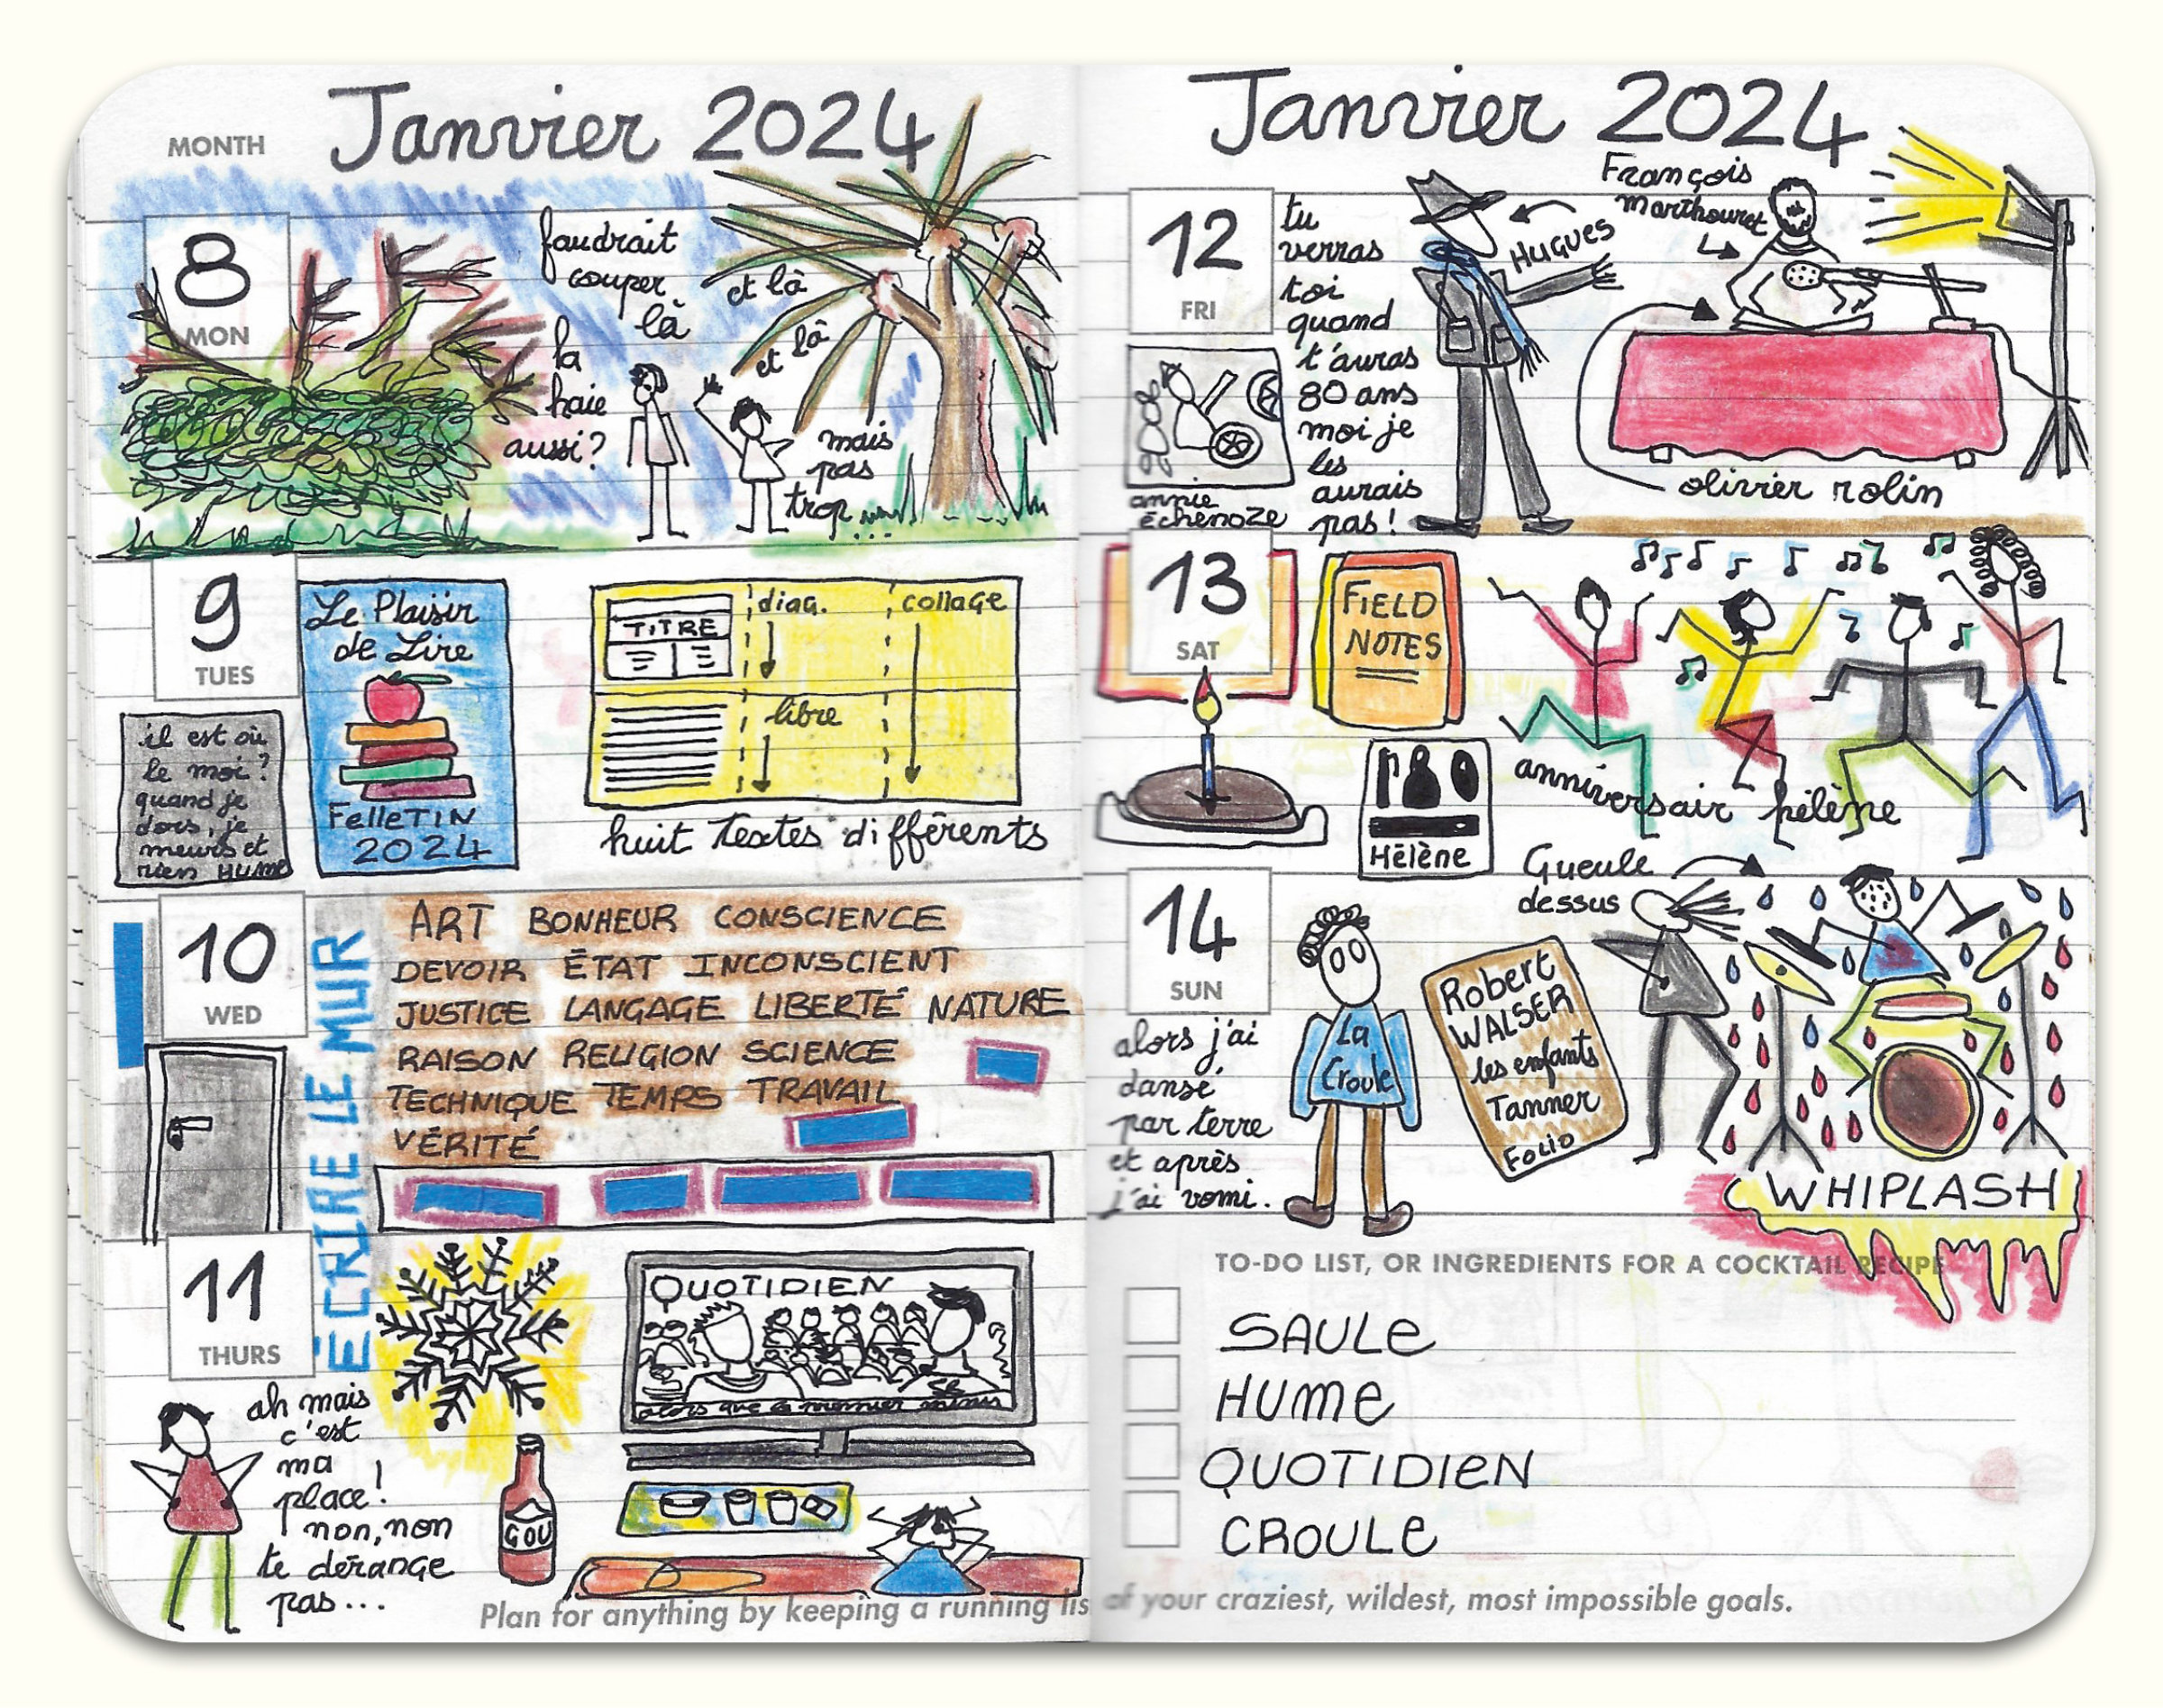 MONTH
Janvier 2024
8
MON
faudrait
couper
là
et là
et là
la
haie
aussi?
mais
pas
trop...
9
TUES
il est où
le moi?
quand je
dors, je
meurs et
rien HUME
Le Plaisir
de Lire
FelleTIN
2024
TITRE
diag.
collage
libre
huit Textes différents
10
WED
ÉCRIRE LE MUR
ART BONHEUR CONSCIENCE
DEVOIR ÉTAT INCONSCIENT
JUSTICE LANGAGE LIBERTÉ NATURE
RAISON RELIGION SCIENCE
TECHNIQUE TEMPS TRAVAIL
VÉRITÉ
11
THURS
ah mais
c'est
ma
place!
non, non
te dérange
pas...
GOU
QUOTIDIEN
alors que le premier minis
Plan for anything by keeping a running lis
Janvier 2024
12
FRI
annie
échenoze
tu
verras
toi
quand
t'auras
80 ans
moi je
les
aurais
pas!
HUGUES
François
Marthouret
olivier rolin
13
SAT
FIELD
NOTES
Hélène
anniversair hélène
14
SUN
alors j'ai
dansé
par terre
et après
j'ai vomi.
La
Croule
Robert
WALSER
les enfants
Tanner
Folio
Gueule
dessus
WHIPLASH
TO-DO LIST, OR INGREDIENTS FOR A COCKTAIL RECIPE
SAULe
HUme
QUOTIDIeN
CROULe
of your craziest, wildest, most impossible goals.